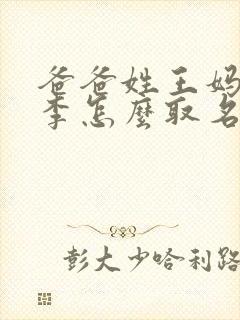 爸爸姓王妈
李怎麼取名
彭大少哈利路